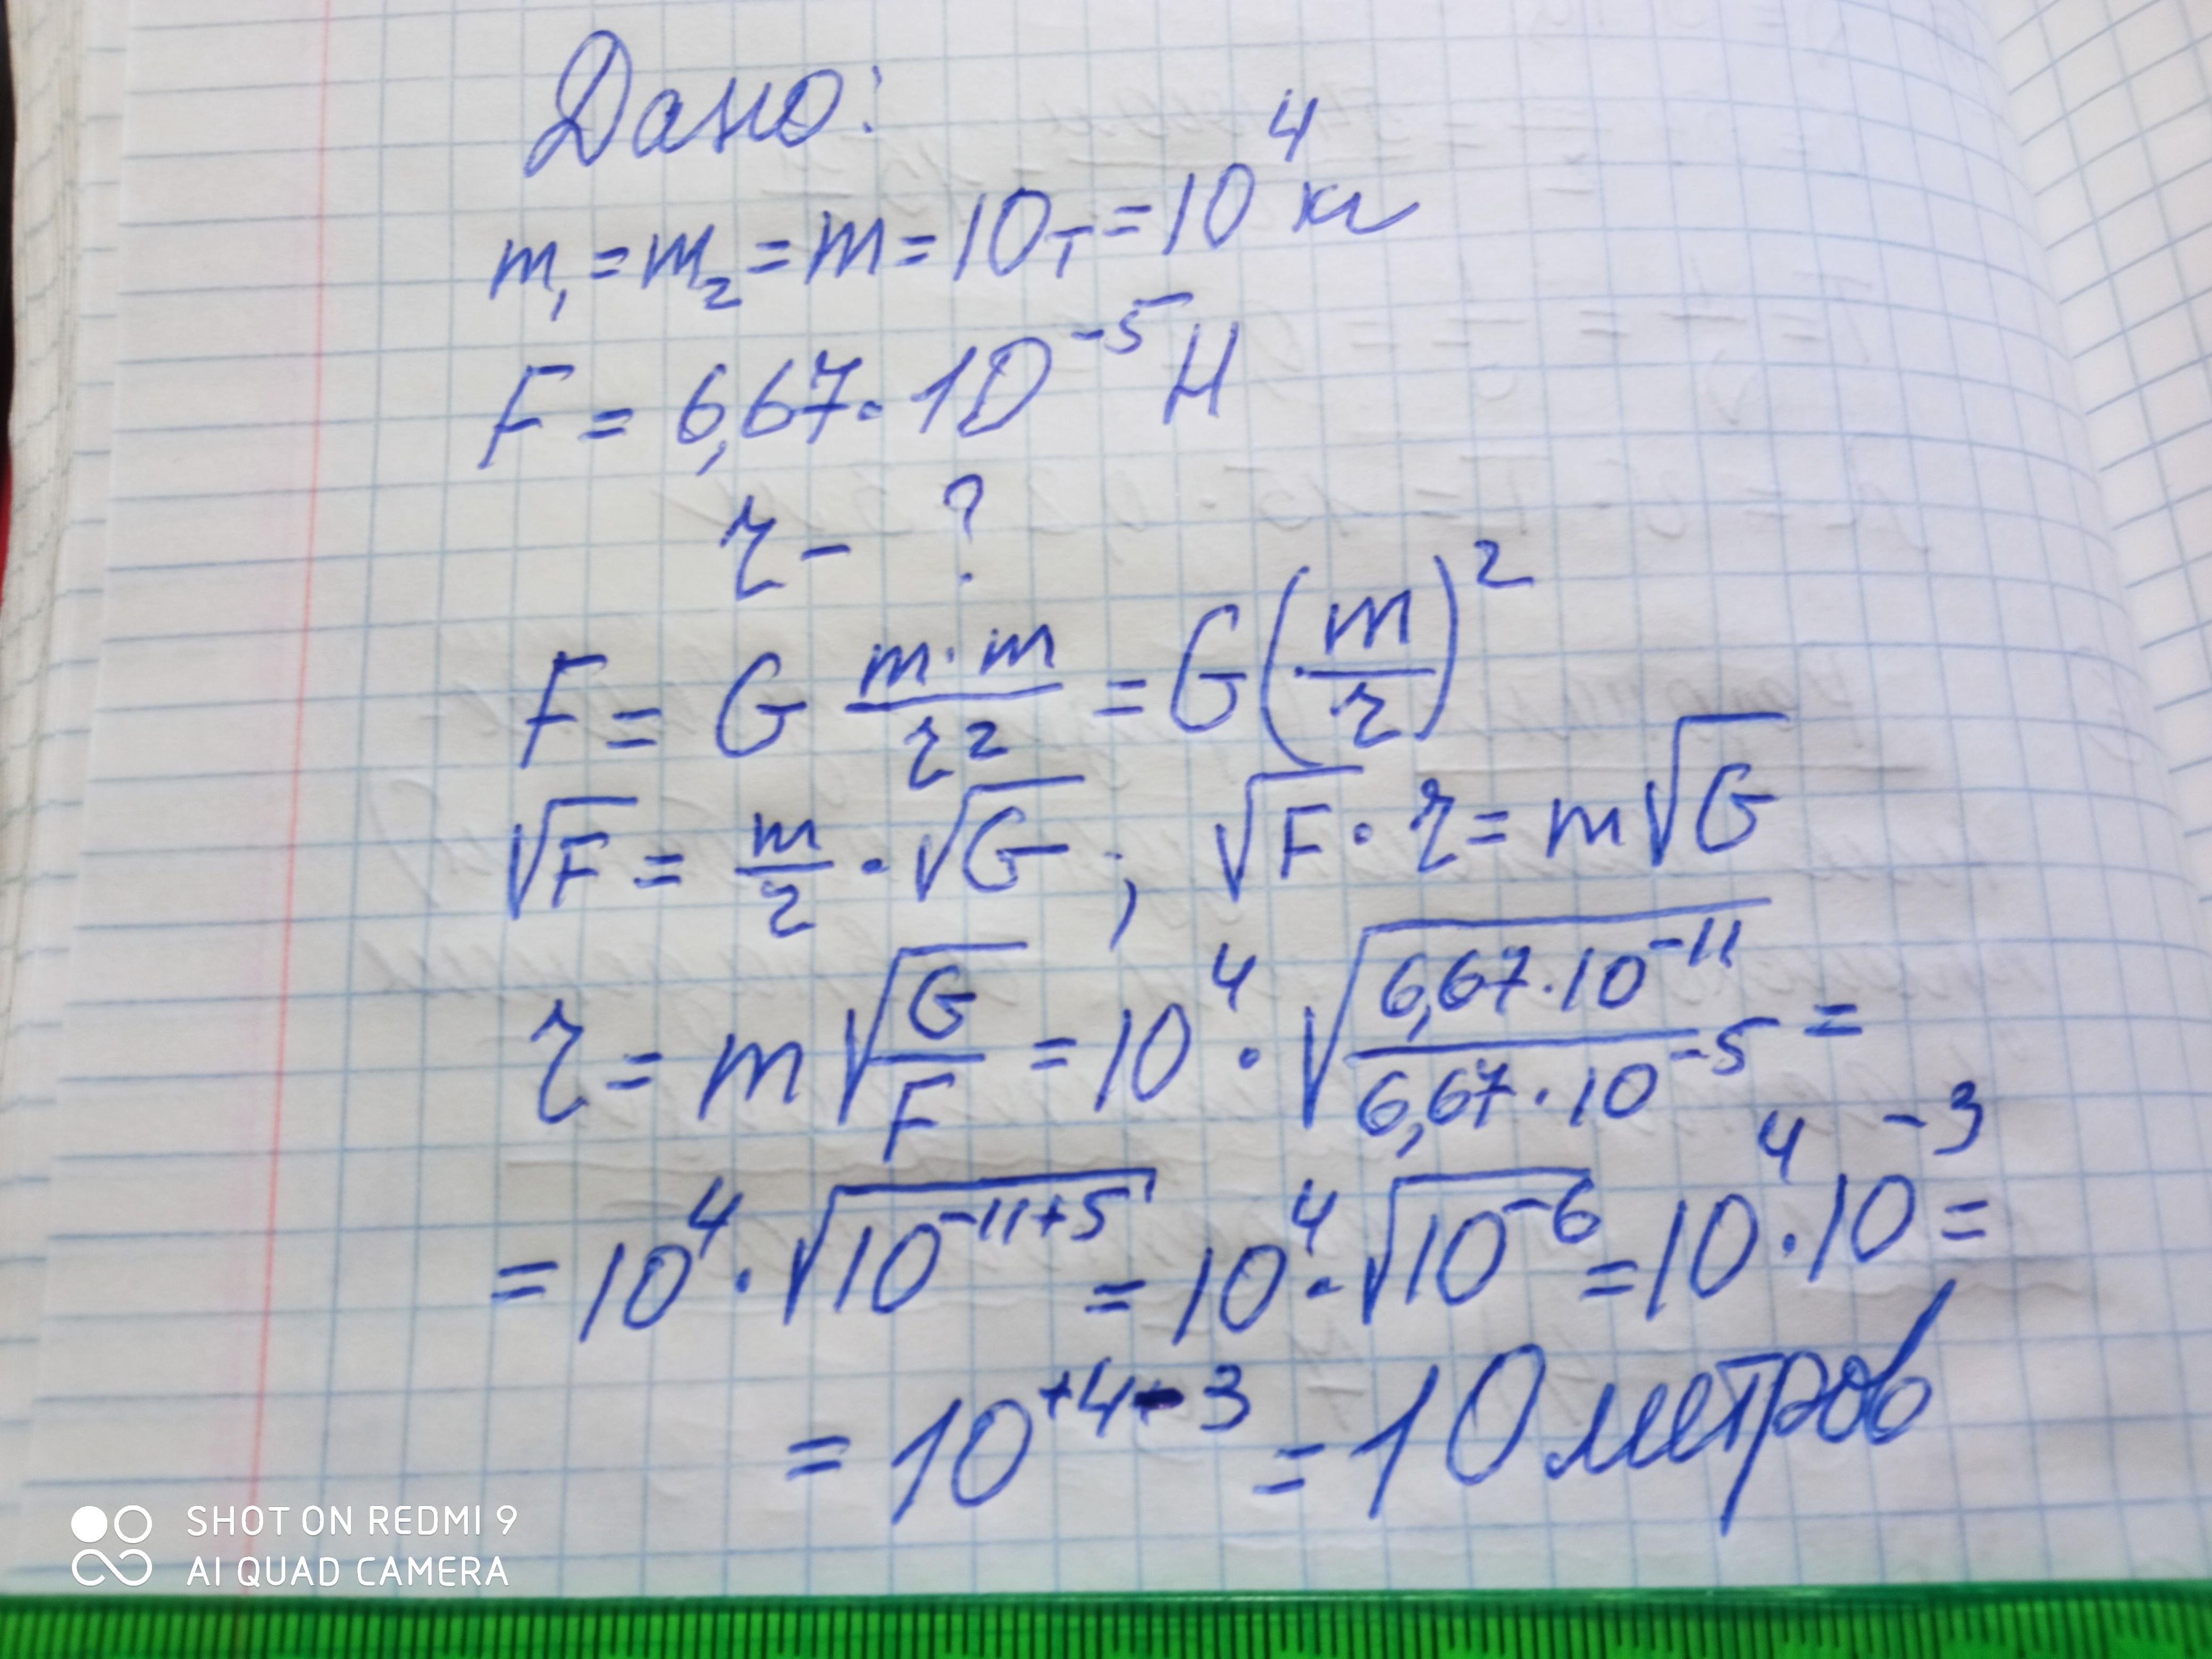 Дано:
m₁ = m₂ = m = 10т = 10⁴ кг
F = 6,67 · 10⁻⁵ Н
r - ?
F = G (m · m)/r² = G (m/r)²
√F = m/r · √G ; √F · r = m√G
r = m√(G/F) = 10⁴ · √((6,67 · 10⁻¹¹)/(6,67 · 10⁻⁵)) =
= 10⁴ · √(10⁻¹¹⁺⁵) = 10⁴ · √(10⁻⁶) = 10⁴ · 10⁻³ =
= 10⁺⁴⁻³ = 10 метров
SHOT ON REDMI 9
AI QUAD CAMERA